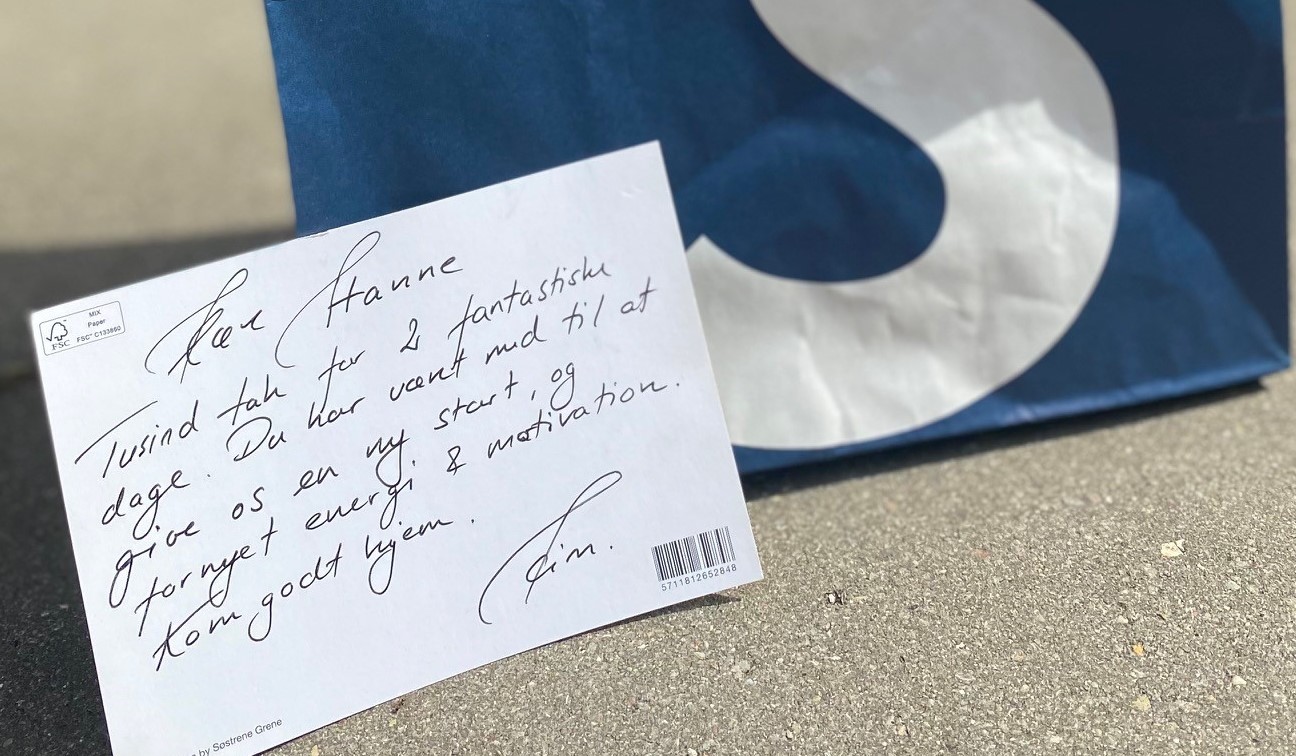 MIX
Paper
FSC
FSC® C133860
Kære Hanne
Tusind tak for 2 fantastiske
dage. Du har været med til at
give os en ny start, og
fornyet energi & motivation.
Kom godt hjem.
Kim.
5711812652848
by Søstrene Grene
S